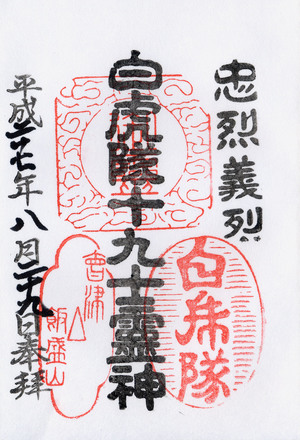 忠烈義烈
白虎隊十九士靈神
白虎隊
會津
飯盛山
平成二十七年八月二十九日奉拜